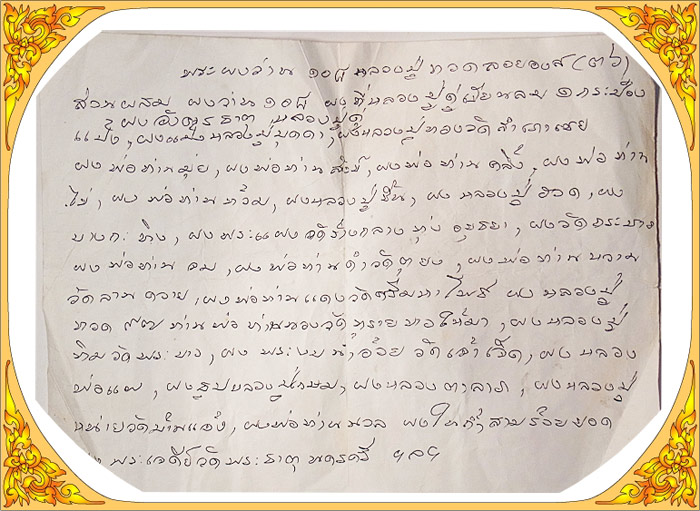 พระผงว่าน ๑๐๘ หลวงปู่ทวดลอยองค์ (ตัว)
ส่วนผสม ผงว่าน ๑๐๘ ผงที่หลวงปู่ดู่เขียนลบ ๑ กระเบื้อง
ผงอังคารธาตุ หลวงปู่ดู่
แป้ง, ผงแป้งหลวงปู่บุดดา, ผงหลวงปู่ทองวัดสำเภาเชย
ผงพ่อท่านมุ่ย, ผงพ่อท่าน, ผงพ่อท่านคลิ้ง, ผงพ่อท่าน
ไข่, ผงพ่อท่านหวั้ม, ผงหลวงปู่ชื้น, ผงหลวงปู่ฮวด, ผง
บางกะทิง, ผงพระแผงเจดีย์ร้างกลางทุ่งอยุธยา, ผงวัดกระซาย
ผงพ่อท่านฉม, ผงพ่อท่านดำวัดตุยง, ผงพ่อท่านหวาน
วัดลานควาย, ผงพ่อท่านแดงวัดศรีมหาโพธิ์ ผงหลวงปู่
ทวด ๙๗ ท่านพ่อท่านทองวัดทรายทองให้มา, ผงหลวงปู่
ทิมวัดพระขาว, ผงพระขุนน้ำอ้อยวัดเจ้าเจ็ด, ผงหลวง
พ่อแพ, ผงธูปหลวงปู่เกษม, ผงหลวงตาลาภ, ผงหลวงปู่
หน่ายวัดบ้านแจ้ง, ผงพ่อท่านนวล ผงในถ้ำสามร้อยยอด
พระเจดีย์วัดพระธาตุนครศรี ฯลฯ